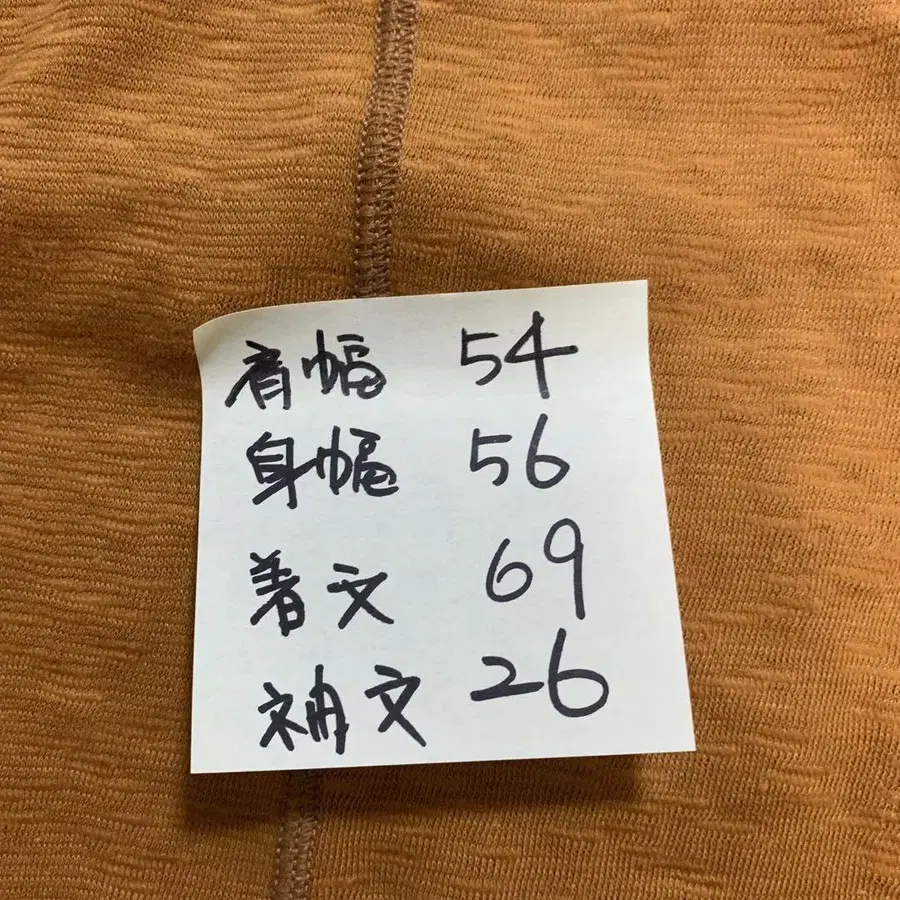 肩幅 54
身幅 56
着丈 69
袖丈 26